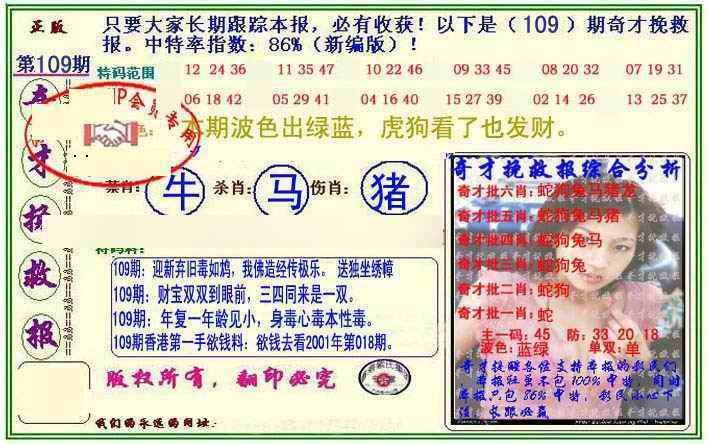 正版
只要大家长期跟踪本报，必有收获！以下是（109）期奇才挽救
报。中特率指数：86%（新编版）！
第109期
特码范围
12 24 36 11 35 47 10 22 46 09 33 45 08 20 32 07 19 31
06 18 42 05 29 41 04 16 40 15 27 39 02 14 26 13 25 37
P会员专用
本期波色出绿蓝，虎狗看了也发财。
才
救
报
禁肖：牛 杀肖：马 伤肖：猪
109期：迎新弃旧毒如鸩，我佛造经传极乐。 送独坐绣幛
109期：财宝双双到眼前，三四同来是一双。
109期：年复一年龄见小，身毒心毒本性毒。
109期香港第一手欲钱料：欲钱去看2001年第018期。
版权所有，翻印必究
我们的永远的网址：
奇才挽救报综合分析
奇才批六肖：蛇狗兔马猪龙
奇才批五肖：蛇狗兔马猪
奇才批四肖：蛇狗兔马
奇才批三肖：蛇狗兔
奇才批二肖：蛇狗
奇才批一肖：蛇
主一码：45 防：33 20 18
波色：蓝绿 单双：单
奇才提醒各位支持本报的彩民们
本报社虽不包100%中特，同时
本报只包86%中特，彩民小心下
注，长跟必赢